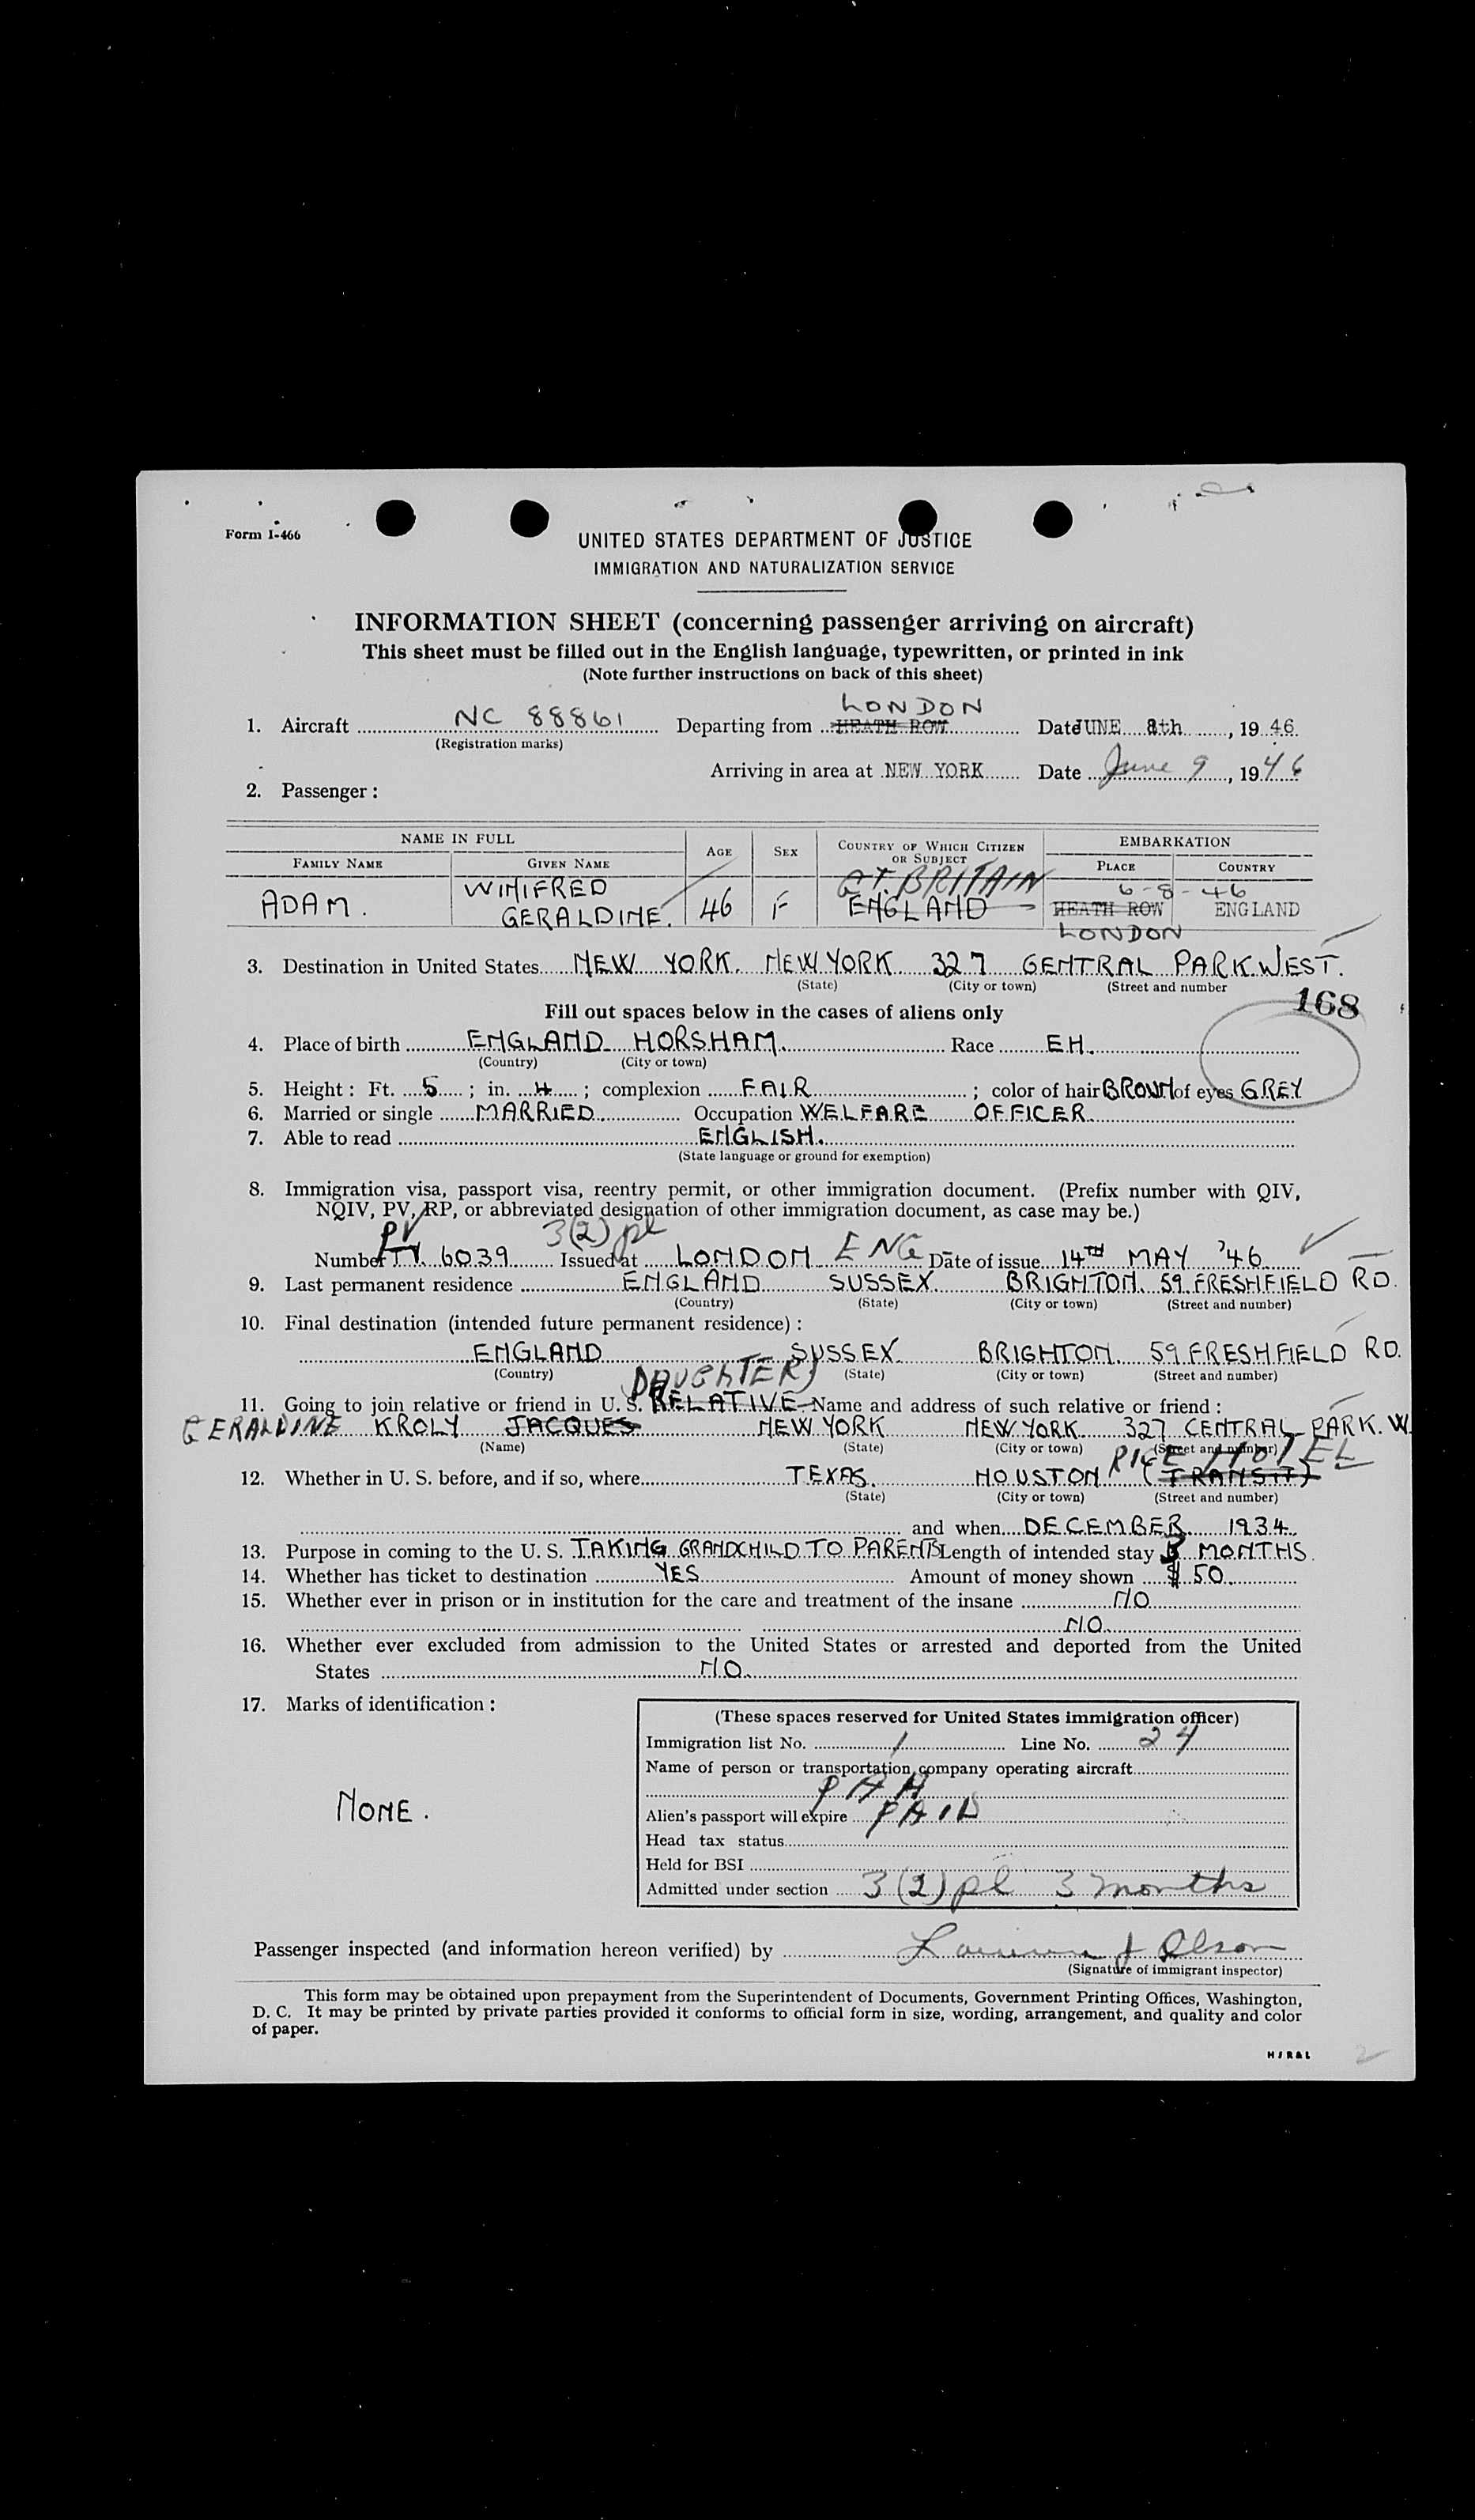 Form I-466
UNITED STATES DEPARTMENT OF JUSTICE
IMMIGRATION AND NATURALIZATION SERVICE
INFORMATION SHEET (concerning passenger arriving on aircraft)
This sheet must be filled out in the English language, typewritten, or printed in ink
(Note further instructions on back of this sheet)
LONDON
1. Aircraft NC 88861 Departing from HEATH ROW Date JUNE 8th, 1946
(Registration marks)
Arriving in area at NEW YORK Date June 9, 1946
2. Passenger:
NAME IN FULL AGE SEX COUNTRY OF WHICH CITIZEN OR SUBJECT EMBARKATION
FAMILY NAME GIVEN NAME PLACE COUNTRY
WINIFRED GT. BRITAIN 6-8-46
ADAM. GERALDINE. 46 F ENGLAND HEATH ROW ENGLAND
LONDON
3. Destination in United States NEW YORK. NEW YORK 327 CENTRAL PARK WEST.
(State) (City or town) (Street and number
168
Fill out spaces below in the cases of aliens only
4. Place of birth ENGLAND HORSHAM. Race EH.
(Country) (City or town)
5. Height: Ft. 5; in. 4; complexion FAIR; color of hair BROWN of eyes GREY
6. Married or single MARRIED. Occupation WELFARE OFFICER.
7. Able to read ENGLISH.
(State language or ground for exemption)
8. Immigration visa, passport visa, reentry permit, or other immigration document. (Prefix number with QIV,
NQIV, PV, RP, or abbreviated designation of other immigration document, as case may be.)
PV 3(2) pl
Number 6039 Issued at LONDON ENG Date of issue 14TH MAY '46
9. Last permanent residence ENGLAND SUSSEX. BRIGHTON. 59 FRESHFIELD RD.
(Country) (State) (City or town) (Street and number)
10. Final destination (intended future permanent residence):
ENGLAND SUSSEX BRIGHTON 59 FRESHFIELD RD.
(Country) (State) (City or town) (Street and number)
DAUGHTER)
11. Going to join relative or friend in U. S. RELATIVE Name and address of such relative or friend:
GERALDINE KROLY JACQUES NEW YORK NEW YORK 327 CENTRAL PARK. W.
(Name) (State) (City or town) (Street and number)
RICE HOTEL
12. Whether in U. S. before, and if so, where TEXAS. HOUSTON (TRANSIT)
(State) (City or town) (Street and number)
and when DECEMBER 1934.
13. Purpose in coming to the U. S. TAKING GRANDCHILD TO PARENTS Length of intended stay 3 MONTHS.
14. Whether has ticket to destination YES Amount of money shown $ 50.
15. Whether ever in prison or in institution for the care and treatment of the insane NO
NO.
16. Whether ever excluded from admission to the United States or arrested and deported from the United
States NO.
17. Marks of identification:
NONE.
(These spaces reserved for United States immigration officer)
Immigration list No. 1 Line No. 24
Name of person or transportation company operating aircraft
PAA
Alien's passport will expire PAID
Head tax status
Held for BSI
Admitted under section 3(2) pl 3 months
Passenger inspected (and information hereon verified) by J Olson
(Signature of immigrant inspector)
This form may be obtained upon prepayment from the Superintendent of Documents, Government Printing Offices, Washington,
D. C. It may be printed by private parties provided it conforms to official form in size, wording, arrangement, and quality and color
of paper.
2